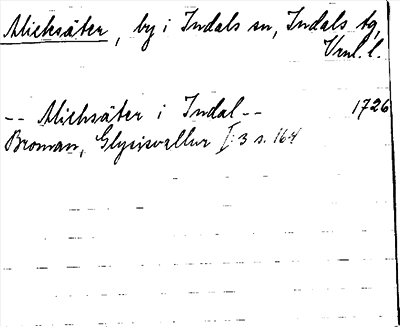 Alicksäter, by i Indals sn, Indals tg,
Vrnl. l.
-- Alichsäter i Indal -- 1726
Broman, Glysisvallur I:3 s. 164